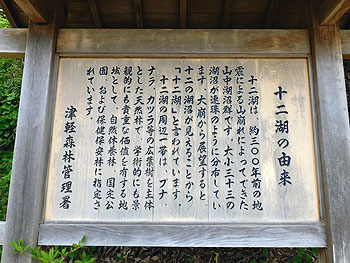 十二湖の由来
十二湖は、約三〇〇年前の地
震による山崩れによってできた
山中湖沼群です。大小三十三の
湖沼が連珠のように分布してい
ます。大崩から展望すると
十二の湖沼が見えることから
「十二湖」と言われています。
十二湖の周辺一帯は、ブナ、
ナラ、カツラ等の広葉樹を主体
とした天然林で、学術的にも景
観的にも貴重な価値を有する地
域として、自然休養林、国定公
園、および保健保安林に指定さ
れています。
津軽森林管理署